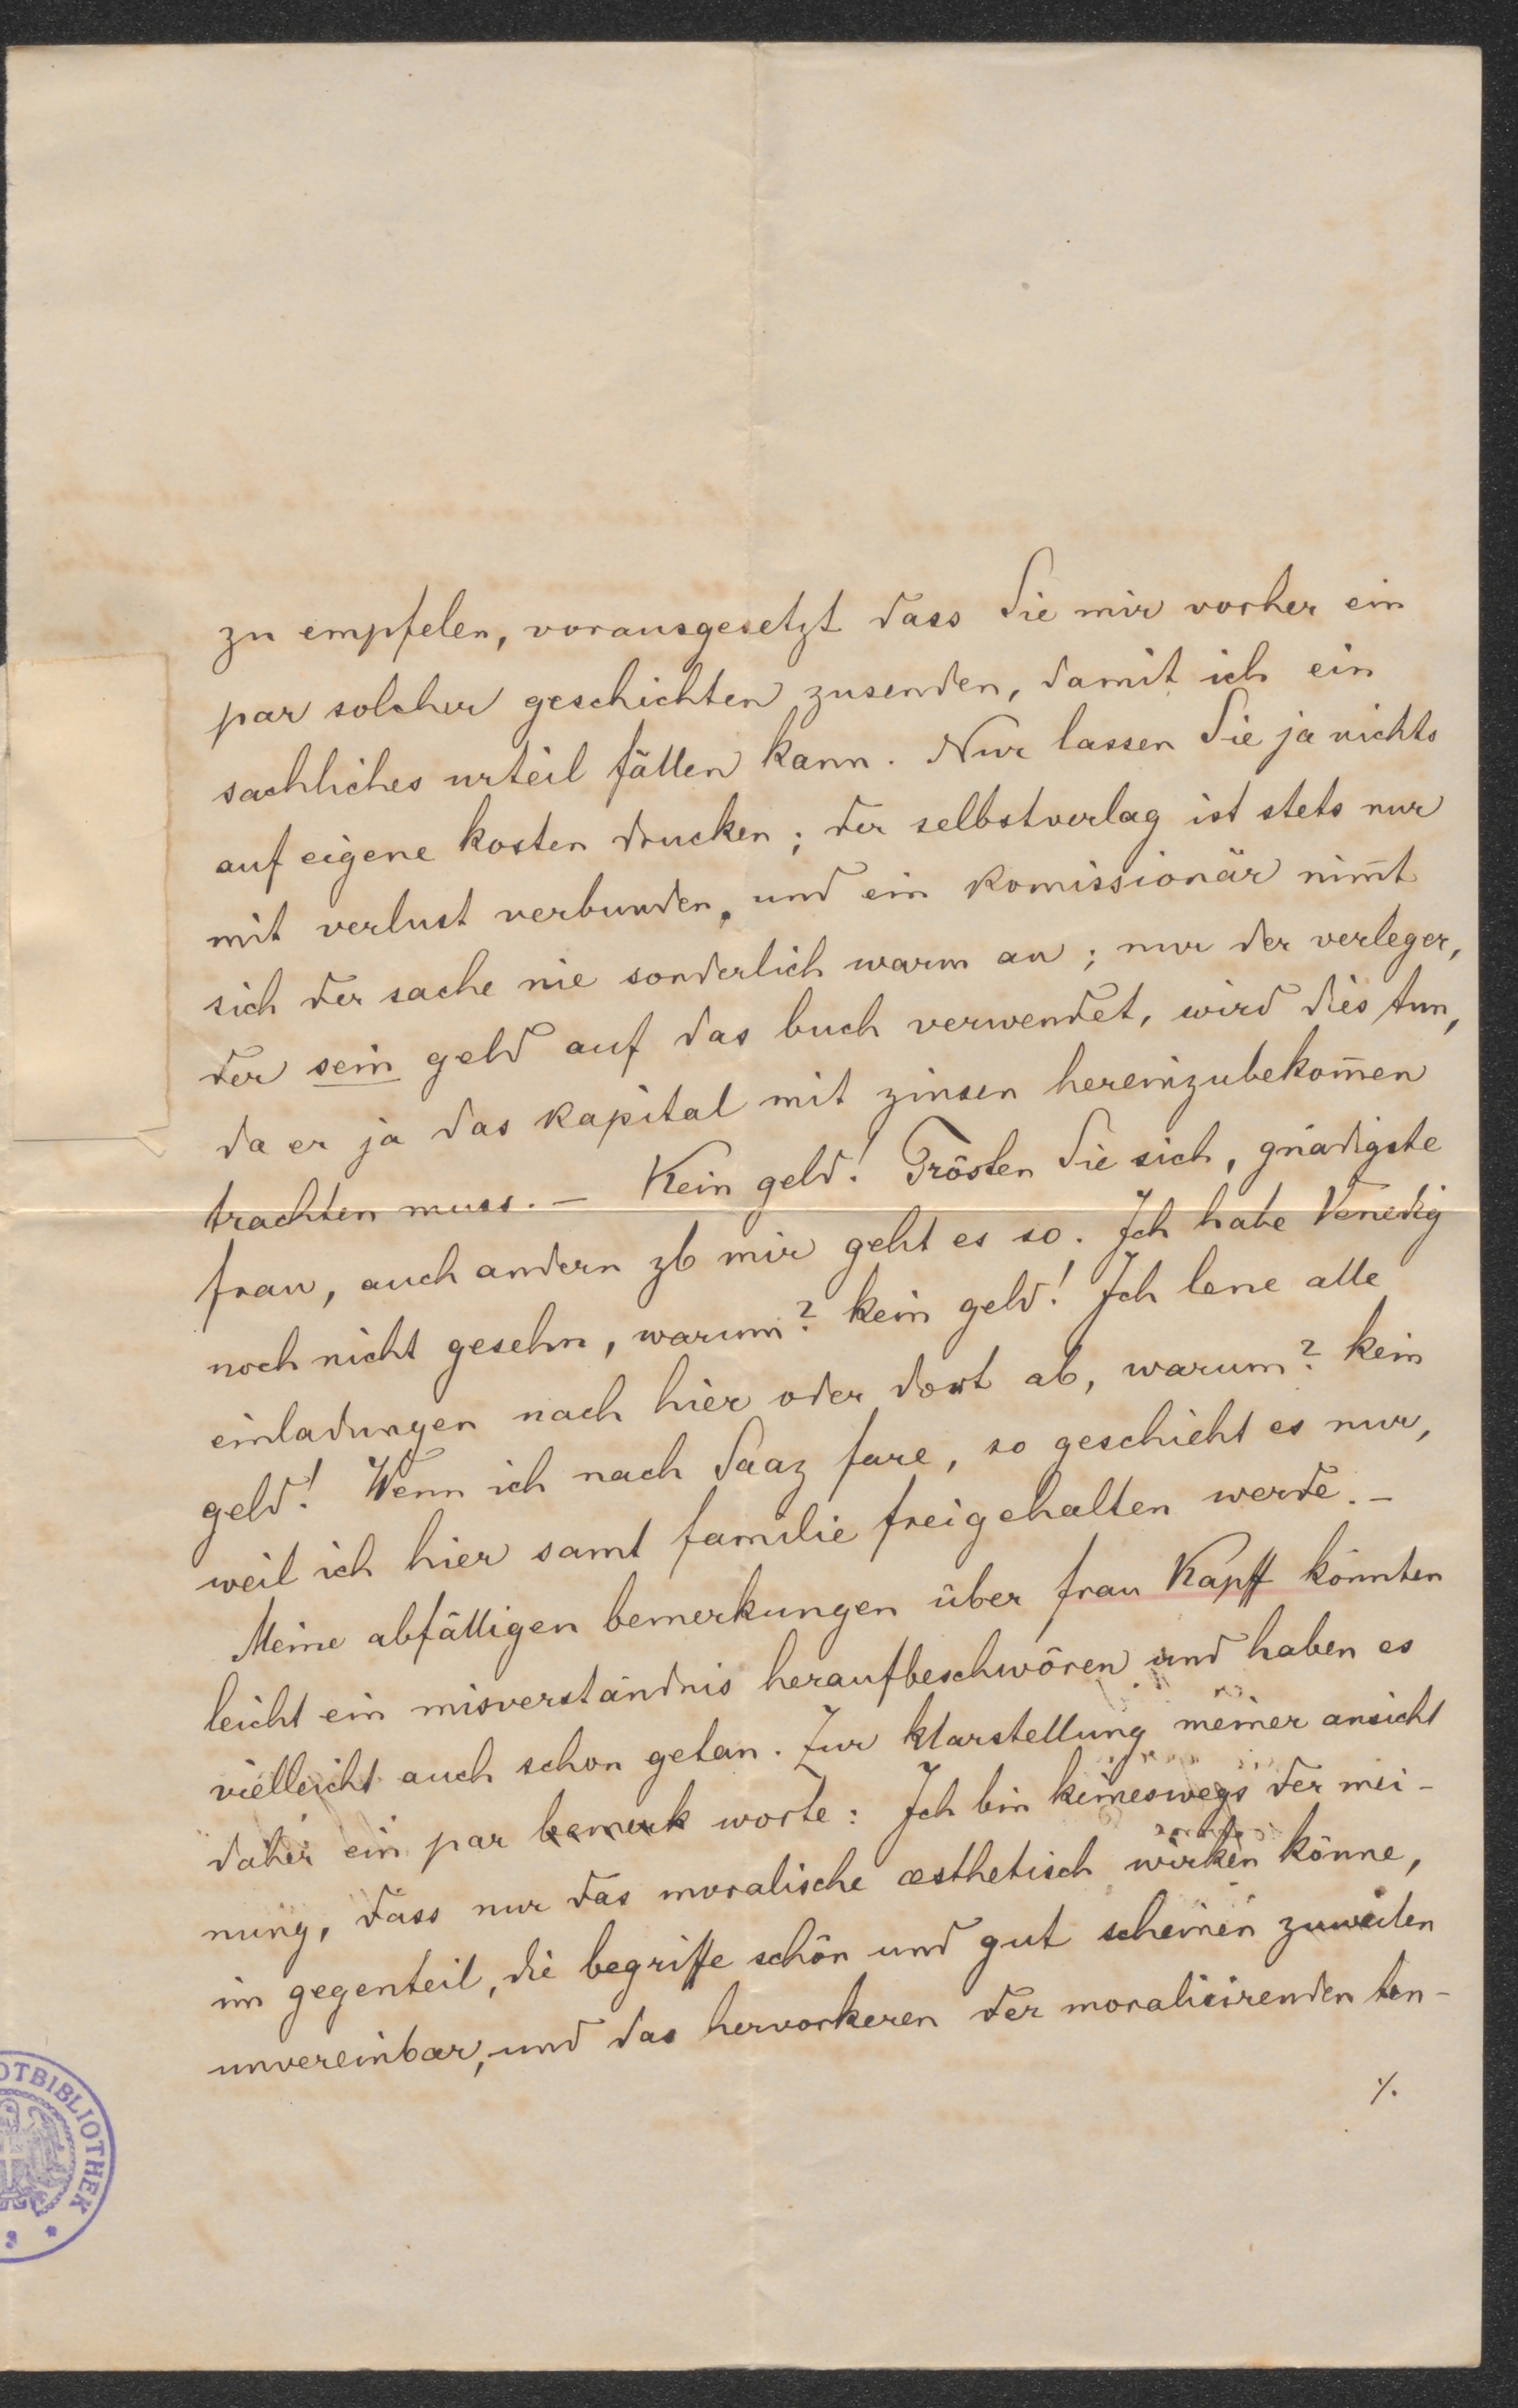 zu empfelen, vorausgesetzt dass Sie mir vorher ein
par solcher geschichten zusenden, damit ich ein
sachliches urteil fällen kann. Nur lassen Sie ja nichts
auf eigene kosten drucken; der selbstverlag ist stets nur
mit verlust verbunden, und ein komissionär nim̅t
sich der sache nie sonderlich warm an; nur der verleger,
der sein geld auf das buch verwendet, wird dies tun,
da er ja das kapital mit zinsen hereinzubekom̅en
trachten muss. – Kein geld! Trösten Sie sich, gnädigste
frau, auch andern zb mir geht es so. Ich habe Venedig
noch nicht gesehn, warum? kein geld! Ich lene alle
einladungen nach hier oder dort ab, warum? kein
geld! Wenn ich nach Saaz fare, so geschieht es nur,
weil ich hier samt familie freigehalten werde. –
Meine abfälligen bemerkungen über frau Kapff könnten
leicht ein misverständnis heraufbeschwören und haben es
vielleicht auch schon getan. Zur klarstellung meiner ansicht
daher ein par bemerk worte: Ich bin keineswegs der mei-
nung, dass nur das moralische æsthetisch wirken könne,
im gegenteil, die begriffe schön und gut scheinen zuweilen
unvereinbar, und das hervorkeren der moralisirenden ten-
./.
OTBIBLIOTHEK